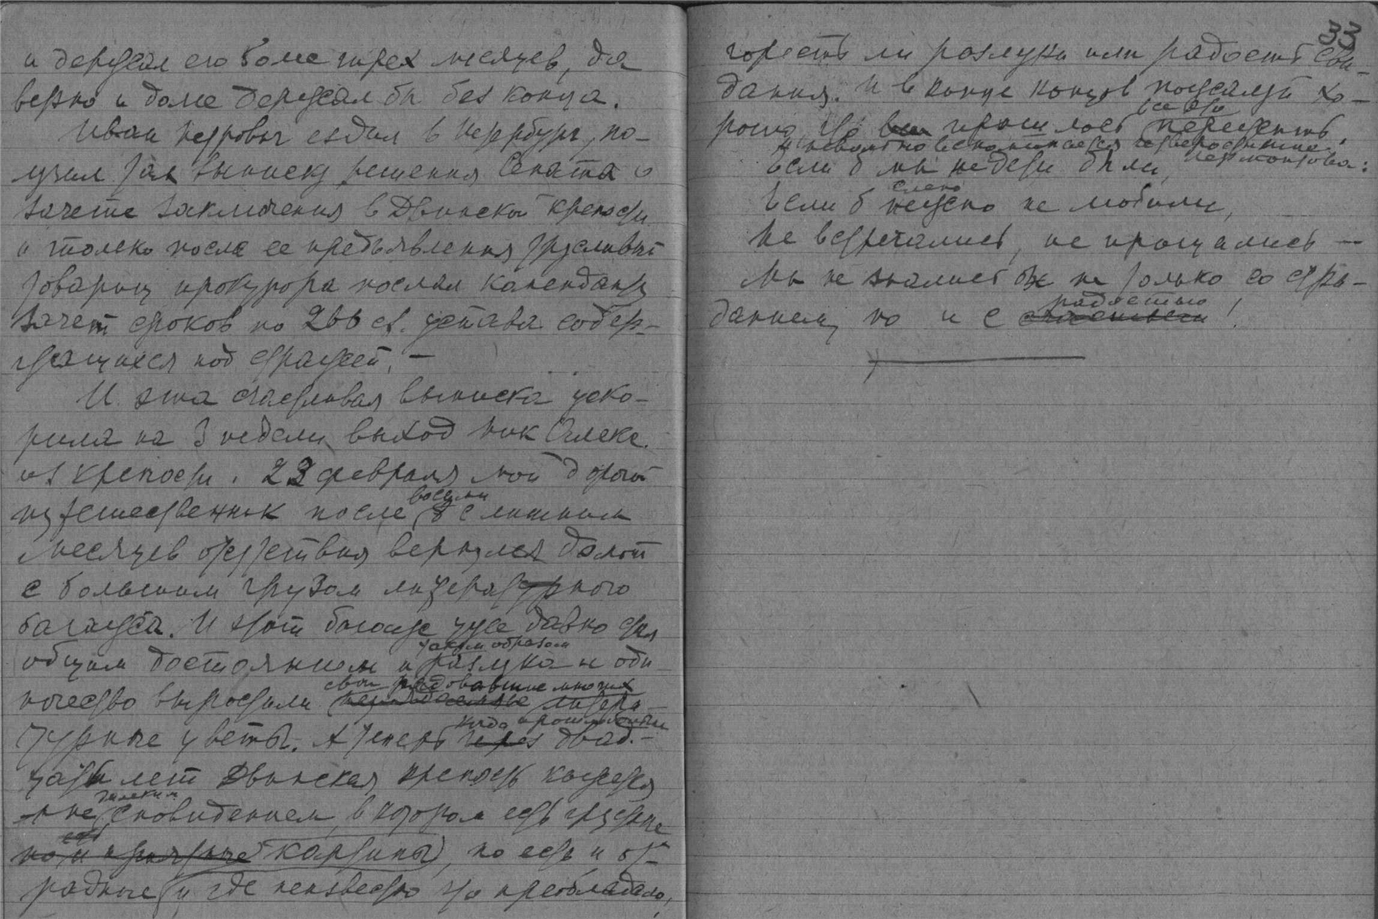 и держал его более трех месяцев, да
верно и доле держал бы без конца.
Иван Петрович ездил в Петербург, по-
лучил там выписку решения Сената о
зачете заключения в Двинской крепости
и только после ее предъявления
товарищ прокурора послал
зачет сроков по 266 ст. устава содер-
жащихся под стражей, —
И эта счастливая выписка уско-
рила на 3 недели выход Ник Алекс.
из крепости. 22 февраля мой дорогой
путешественник после восьми с лишним
месяцев отсутствия вернулся домой
с большим грузом литературного
багажа. И этот багаж уже давно стал
общим достоянием и таким образом разлука и оди
ночество вырастили свои радовавшие многих литера-
турные цветы. А теперь когда прошло более двад-
цати лет Двинская крепость кажется
мне далеким сновидением, в котором есть грустные
картины, но есть и от-
радные и где неизвестно что преобладало,
33
горесть ли разлуки или радость сви-
дания. И в конце концов пожалуй хо-
рошо, что все это пришлось пережить,
и невольно вспоминается четверостишие Лермонтова:
Если б мы не дети были,
Если б слепо не любили,
Не встречались, не прощались —
Мы не знались бы не только со стра-
данием, но и с радостью!